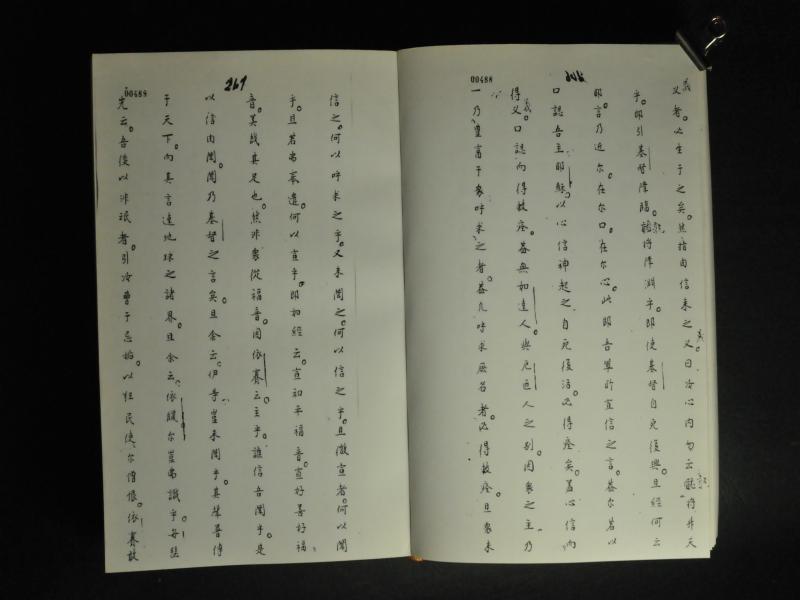 00488
义者。必生于之矣。然指由信来之义曰。尔心内勿云。誰将升天
乎。即引基督降臨。誰将降淵乎。即使基督自死復興。且經何云
耶。言乃近尔。在尔口。在尔心。此即吾軰所宣信之言。蓋尔若以
口認吾主耶穌。以心信神起之自死復活。必得痊矣。蓋心信而
得义。口認而得救痊。蓋無如達人與厄色人之别。因衆之主乃
一。乃豊富于衆呼求之者。蓋凡呼求厥名者。必得救痊。且衆未
267
00488
信之。何以呼求之乎。又未聞之。何以信之乎。且微宣者。何以聞
乎。且若弗奉遣。何以宣乎。即如經云。宣和平福音。宣好善好福
音。美哉其足也。然非衆從福音。因依賽云。主乎。誰信吾聞乎。是
以信由聞。聞乃基督之言矣。且余云。伊等豈未聞乎。其聲普傳
于天下。而其言達地球之諸界。且余云。依臘尔豈弗識乎。每瑟
先云。吾後以非民者。引汝曹于忌妬。以狂民使尔憎恨。依賽敢